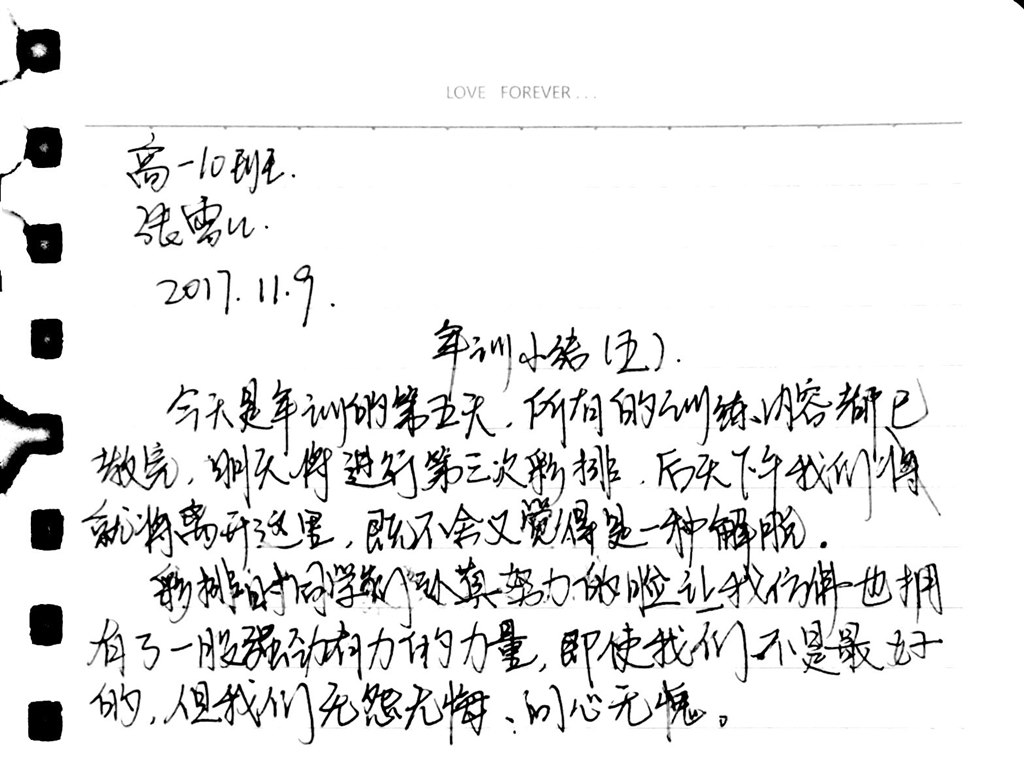 LOVE FOREVER...
高一10班.
张雪儿.
2017.11.9.
军训小结(五).
今天是军训的第五天,所有的训练内容都已
教完,明天将进行第三次彩排,后天下午我们
就将离开这里,既不舍又觉得是一种解脱。
彩排时同学们认真努力的脸让我仿佛也拥
有了一股强劲有力的力量,即使我们不是最好
的,但我们无怨无悔、问心无愧。